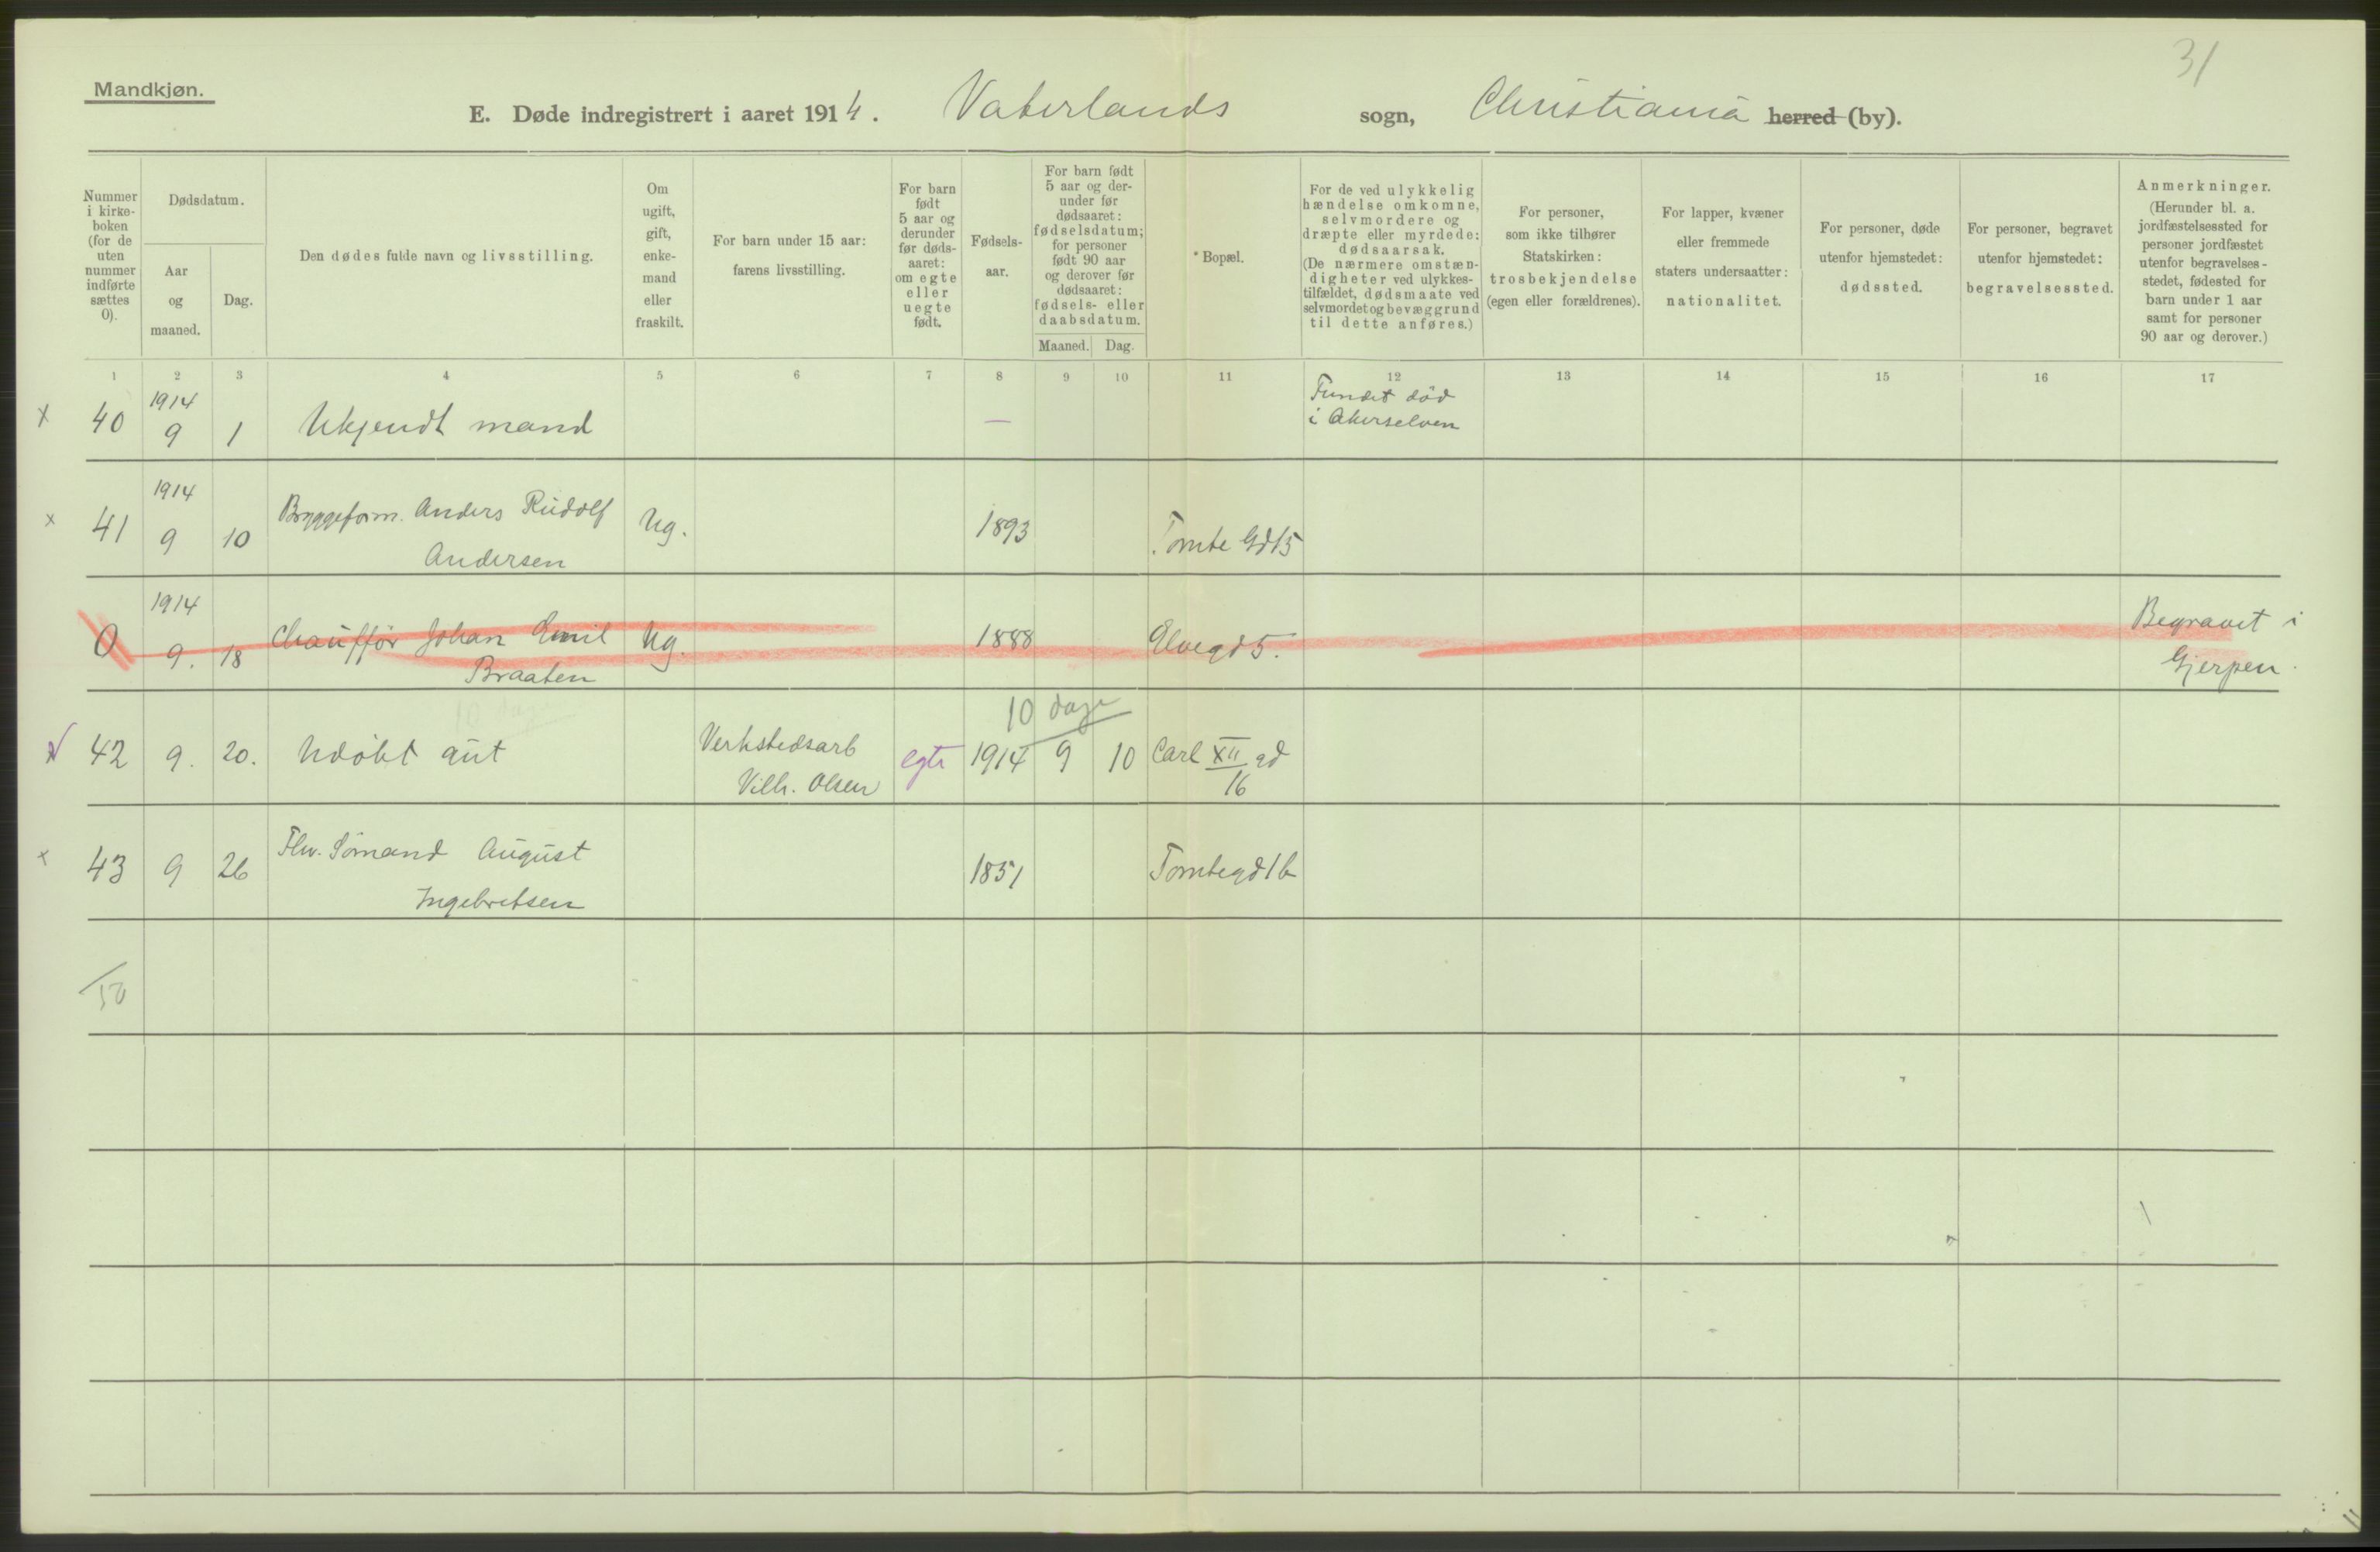 31
Mandkjøn.
E. Døde indregistrert i aaret 1914. Vaterlands sogn, Christiania herred (by).
Nummer
i kirke-
boken
(for de
uten
nummer
indførte
sættes
0).
Dødsdatum.
Aar
og
maaned.
Dag.
Den dødes fulde navn og livsstilling.
Om
ugift,
gift,
enke-
mand
eller
fraskilt.
For barn under 15 aar:
farens livsstilling.
For barn
født
5 aar og
derunder
før døds-
aaret:
om egte
eller
uegte
født.
Fødsels-
aar.
For barn født
5 aar og der-
under før
dødsaaret:
fødselsdatum;
for personer
født 90 aar
og derover før
dødsaaret:
fødsels- eller
daabsdatum.
Maaned. Dag.
* Bopæl.
For de ved ulykkelig
hændelse omkomne,
selvmordere og
dræpte eller myrdede:
dødsaarsak.
(De nærmere omstæn-
digheter ved ulykkes-
tilfældet, dødsmaate ved
selvmordet og bevæggrund
til dette anføres.)
For personer,
som ikke tilhører
Statskirken:
trosbekjendelse
(egen eller forældrenes).
For lapper, kvæner
eller fremmede
staters undersaatter:
nationalitet.
For personer, døde
utenfor hjemstedet:
dødssted.
For personer, begravet
utenfor hjemstedet:
begravelsessted.
Anmerkninger.
(Herunder bl. a.
jordfæstelsessted for
personer jordfæstet
utenfor begravelses-
stedet, fødested for
barn under 1 aar
samt for personer
90 aar og derover.)
1 2 3 4 5 6 7 8 9 10 11 12 13 14 15 16 17
1914 Fundet död
x 40 9 1 Ukjendt mand — i Akerselven
1914
x 41 9 10 Bryggeform. Anders Rudolf Ug. 1893 Tomte Gd 15
Andersen
1914
0 9. 18 Chauffør Johan Emil Ug. 1888 Elvegd 5. Begravet i
Braaten Gjerpen.
10 dage
42 9. 20. Udöbt gut Verkstedsarb egte 1914 9 10 Carl XII gd
Vilh. Olsen 16
x 43 9 26 Fhv. Sömand August 1851 Tomtegd 16
Ingebretsen